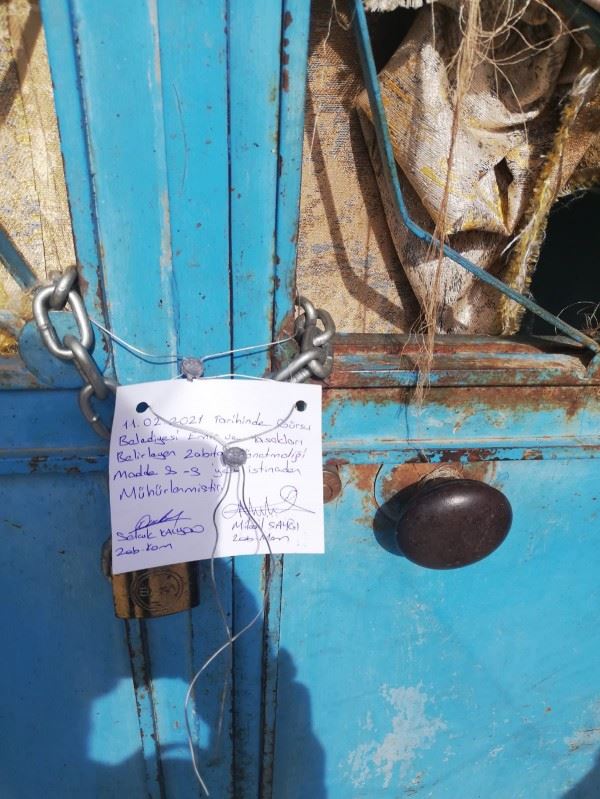 11.02.2021 Tarihinde Gürsu
Belediyesi Emir ve Yasakları
Belirleyen Zabıta Yönetmeliği
Madde 9-g ye istinaden
Mühürlenmiştir
Selçuk
Zab-Kom
SAYGI
Zab-Mem